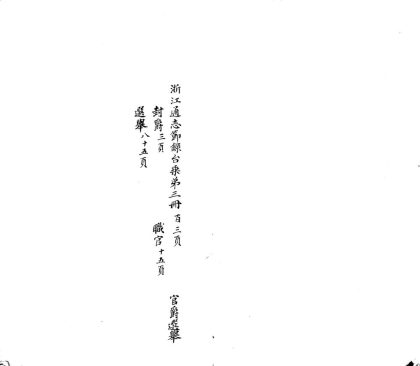 浙江通志節錄台乘第三冊 百三頁 官爵選舉
封爵三頁 職官十五頁
選舉八十五頁